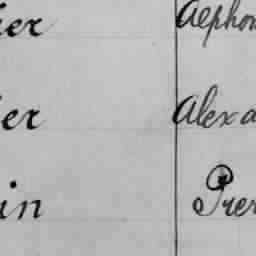 ier Alphon
ier Alexa
in Pier